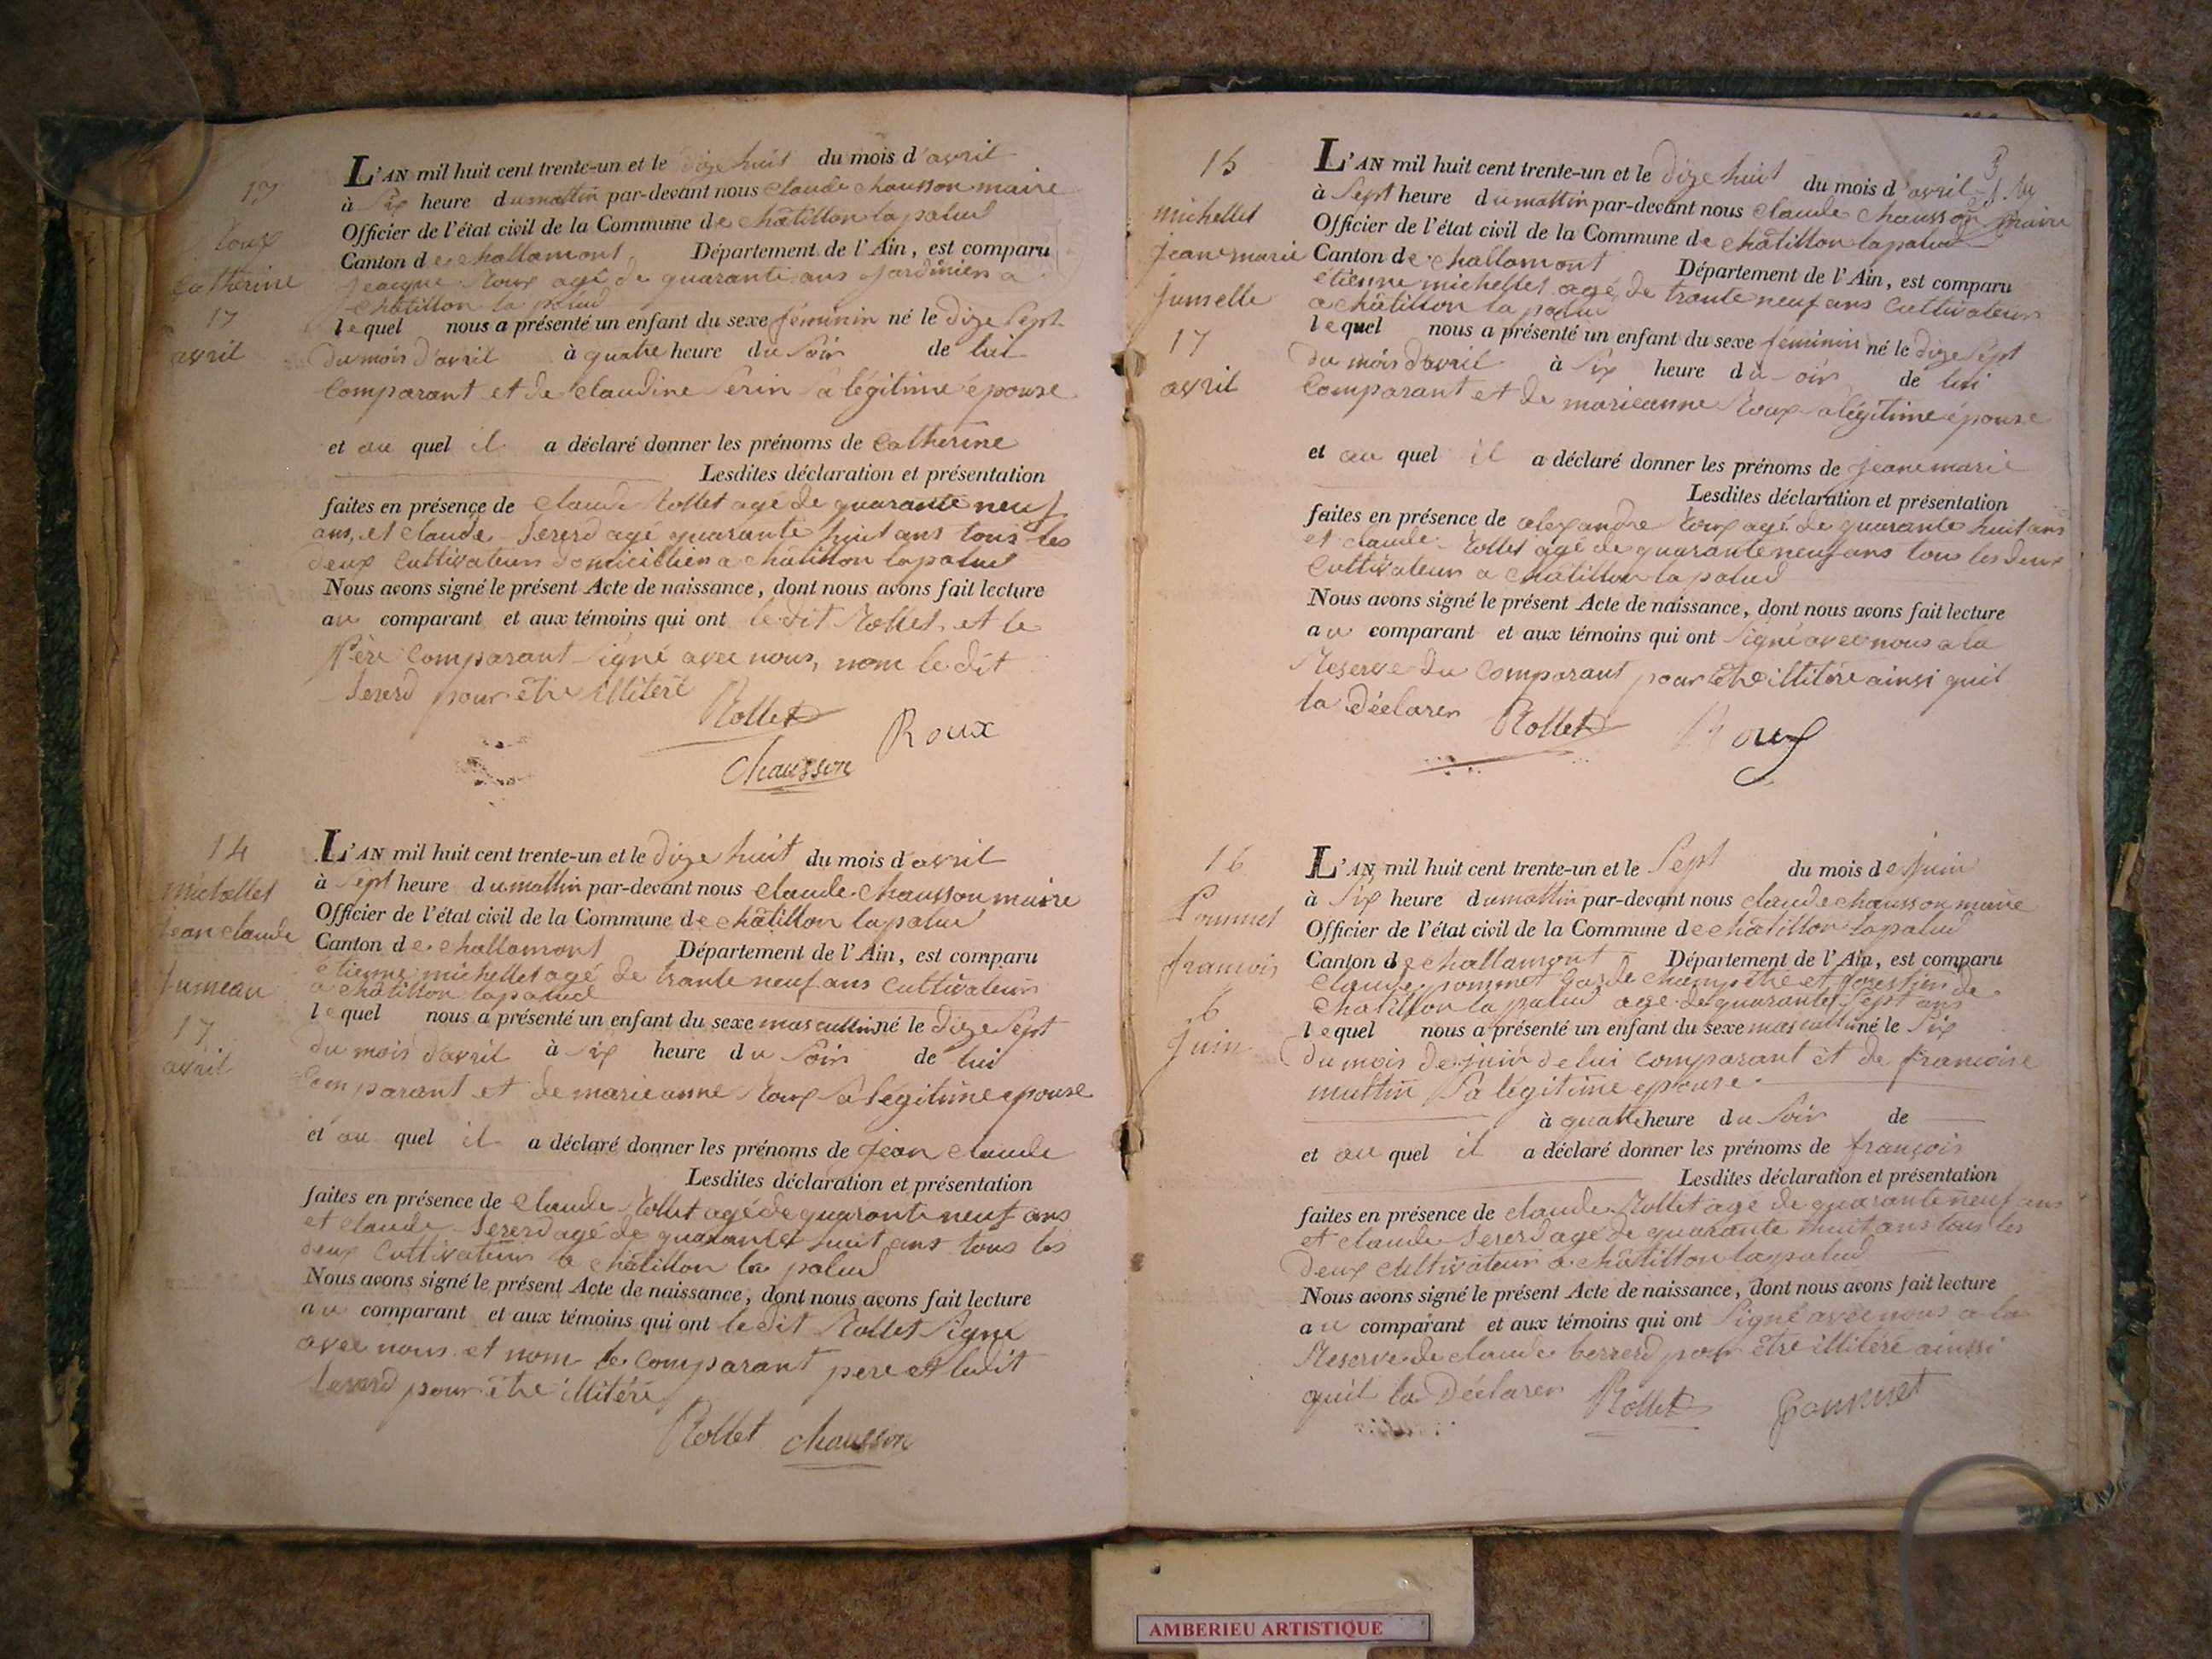 17
roux
Catherine
17
avril
L'AN mil huit cent trente-un et le dize huit du mois d'avril
à six heure du mattin par-devant nous claude chausson maire
Officier de l'état civil de la Commune de châtillon lapalud
Canton de challamont Département de l'Ain, est comparu
jeacque roux agé de quarante ans jardinien a
châtillon la palud
lequel nous a présenté un enfant du sexe féminin né le dize sept
du mois d'avril à quatre heure du soir de lui
comparant et de claudine serin sa légitime épouse
et au quel il a déclaré donner les prénoms de Catherine
Lesdites déclaration et présentation
faites en présence de claude Rollet agé de quarante neuf
ans, et claude agé quarante huit ans tous les
deux cultivateurs domicillien a châtillon lapalud
Nous avons signé le présent Acte de naissance, dont nous avons fait lecture
au comparant et aux témoins qui ont le dit Rollet, et le
Père comparant signé avec nous, nom le dit
pour être illitéré
Rollet
Roux
Chausson
14
michellet
jean claude
jumeau
17
avril
L'AN mil huit cent trente-un et le dize huit du mois d'avril
à sept heure du mattin par-devant nous claude chausson maire
Officier de l'état civil de la Commune de châtillon lapalud
Canton de challamont Département de l'Ain, est comparu
etienne michellet agé de trante neuf ans cultivateur
a châtillon lapalud
lequel nous a présenté un enfant du sexe mascullin né le dize sept
du mois d'avril à six heure du soir de lui
comparant et de marieanne roux sa légitime epouse
et au quel il a déclaré donner les prénoms de jean claude
Lesdites déclaration et présentation
faites en présence de claude Rollet agé de quarante neuf ans
et claude agé de quarante huit ans tous les
deux cultivateurs a châtillon la palud
Nous avons signé le présent Acte de naissance, dont nous avons fait lecture
au comparant et aux témoins qui ont le dit Rollet signé
avec nous et nom le comparant pere et ledit
pour être illitéré
Rollet chausson
15
michellet
jeanemarie
jumelle
17
avril
L'AN mil huit cent trente-un et le dize huit du mois d'avril
à sept heure du mattin par-devant nous claude chausson maire
Officier de l'état civil de la Commune de châtillon lapalud
Canton de challamont Département de l'Ain, est comparu
etienne michellet agé de trante neuf ans cultivateur
a châtillon la palud
lequel nous a présenté un enfant du sexe féminin né le dize sept
du mois d'avril à six heure du soir de lui
comparant et de marieanne roux sa légitime épouse
et au quel il a déclaré donner les prénoms de jeanemarie
Lesdites déclaration et présentation
faites en présence de alexandre roux agé de quarante huit ans
et claude Rollet agé de quarante neuf ans tous les deux
cultivateur a châtillon la palud
Nous avons signé le présent Acte de naissance, dont nous avons fait lecture
au comparant et aux témoins qui ont signé avec nous a la
Reserve du comparant pour être illitére ainsi quil
la déclarer Rollet Roux
16
Pommet
francois
6
juin
L'AN mil huit cent trente-un et le sept du mois de juin
à six heure du mattin par-devant nous claude chausson maire
Officier de l'état civil de la Commune de châtillon lapalud
Canton de challamont Département de l'Ain, est comparu
claude pommet garde champêtre et forestier de
châtillon la palud agé de quarante sept ans
lequel nous a présenté un enfant du sexe né le six
du mois de juin de lui comparant et de francoise
muttin sa légitime epouse
à quatre heure du soir de
et au quel il a déclaré donner les prénoms de françois
Lesdites déclaration et présentation
faites en présence de claude Rollet agé de quarante neuf ans
et claude agé de quarante huit ans tous les
deux cultivateur a châtillon lapalud
Nous avons signé le présent Acte de naissance, dont nous avons fait lecture
au comparant et aux témoins qui ont signé avec nous a la
Reserve de claude berrerd pour être illitéré ainssi
quil la déclarer Rollet Pommet
AMBERIEU ARTISTIQUE